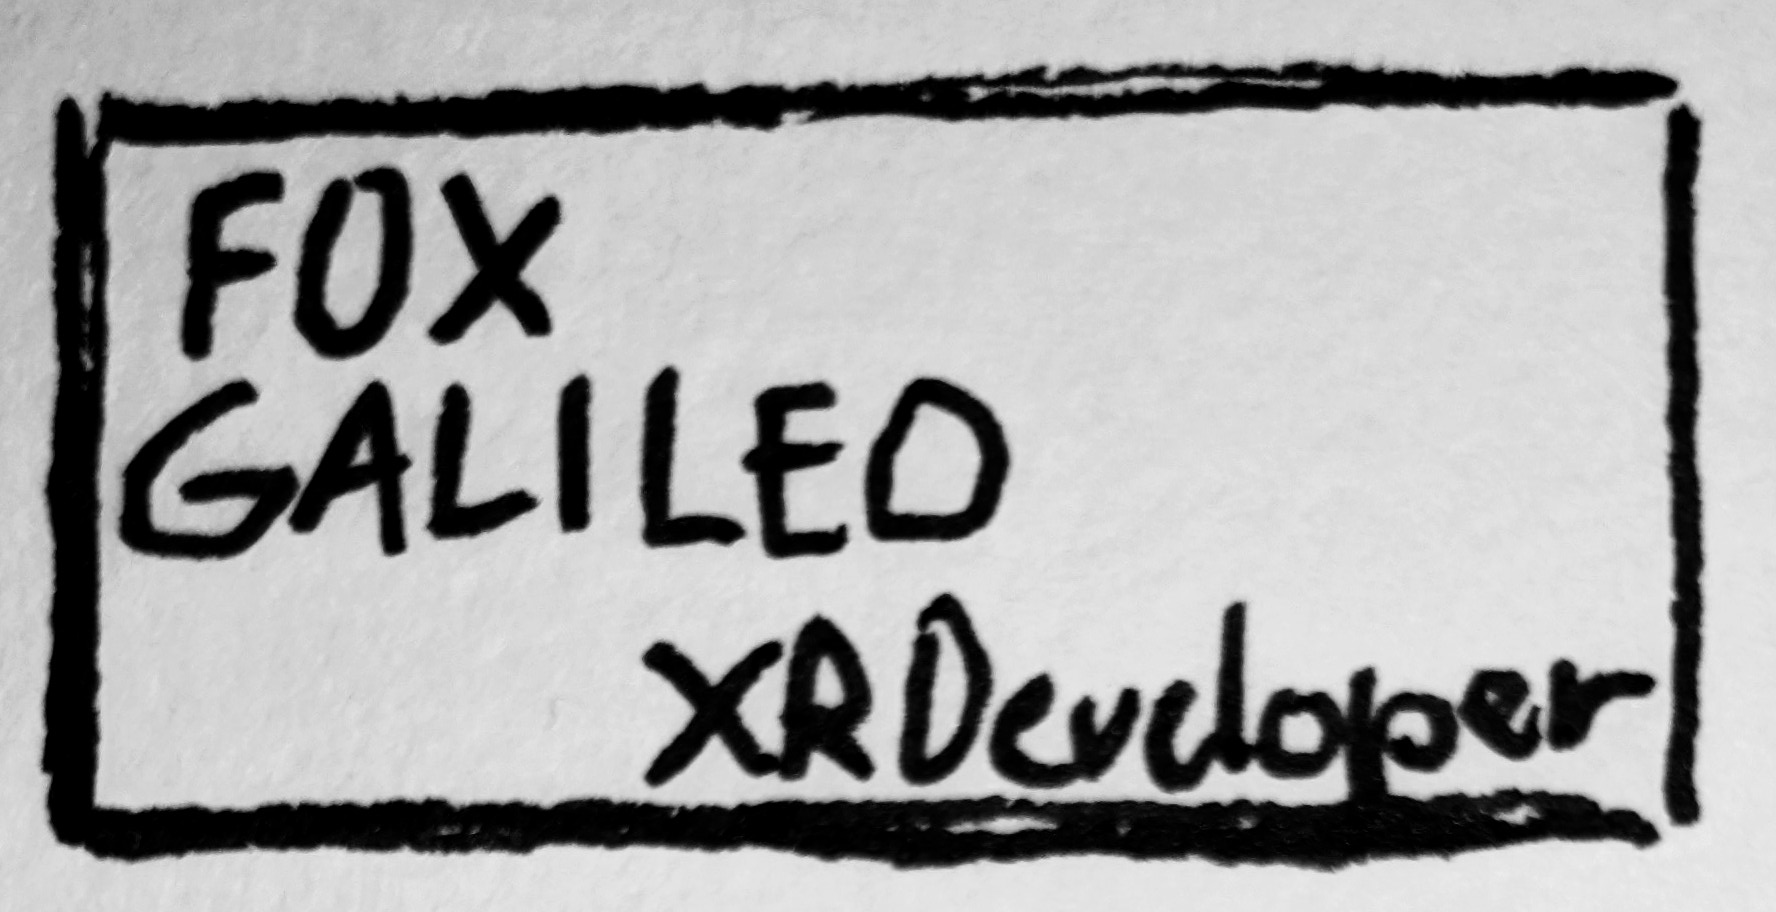 FOX
GALILEO
XR Developer